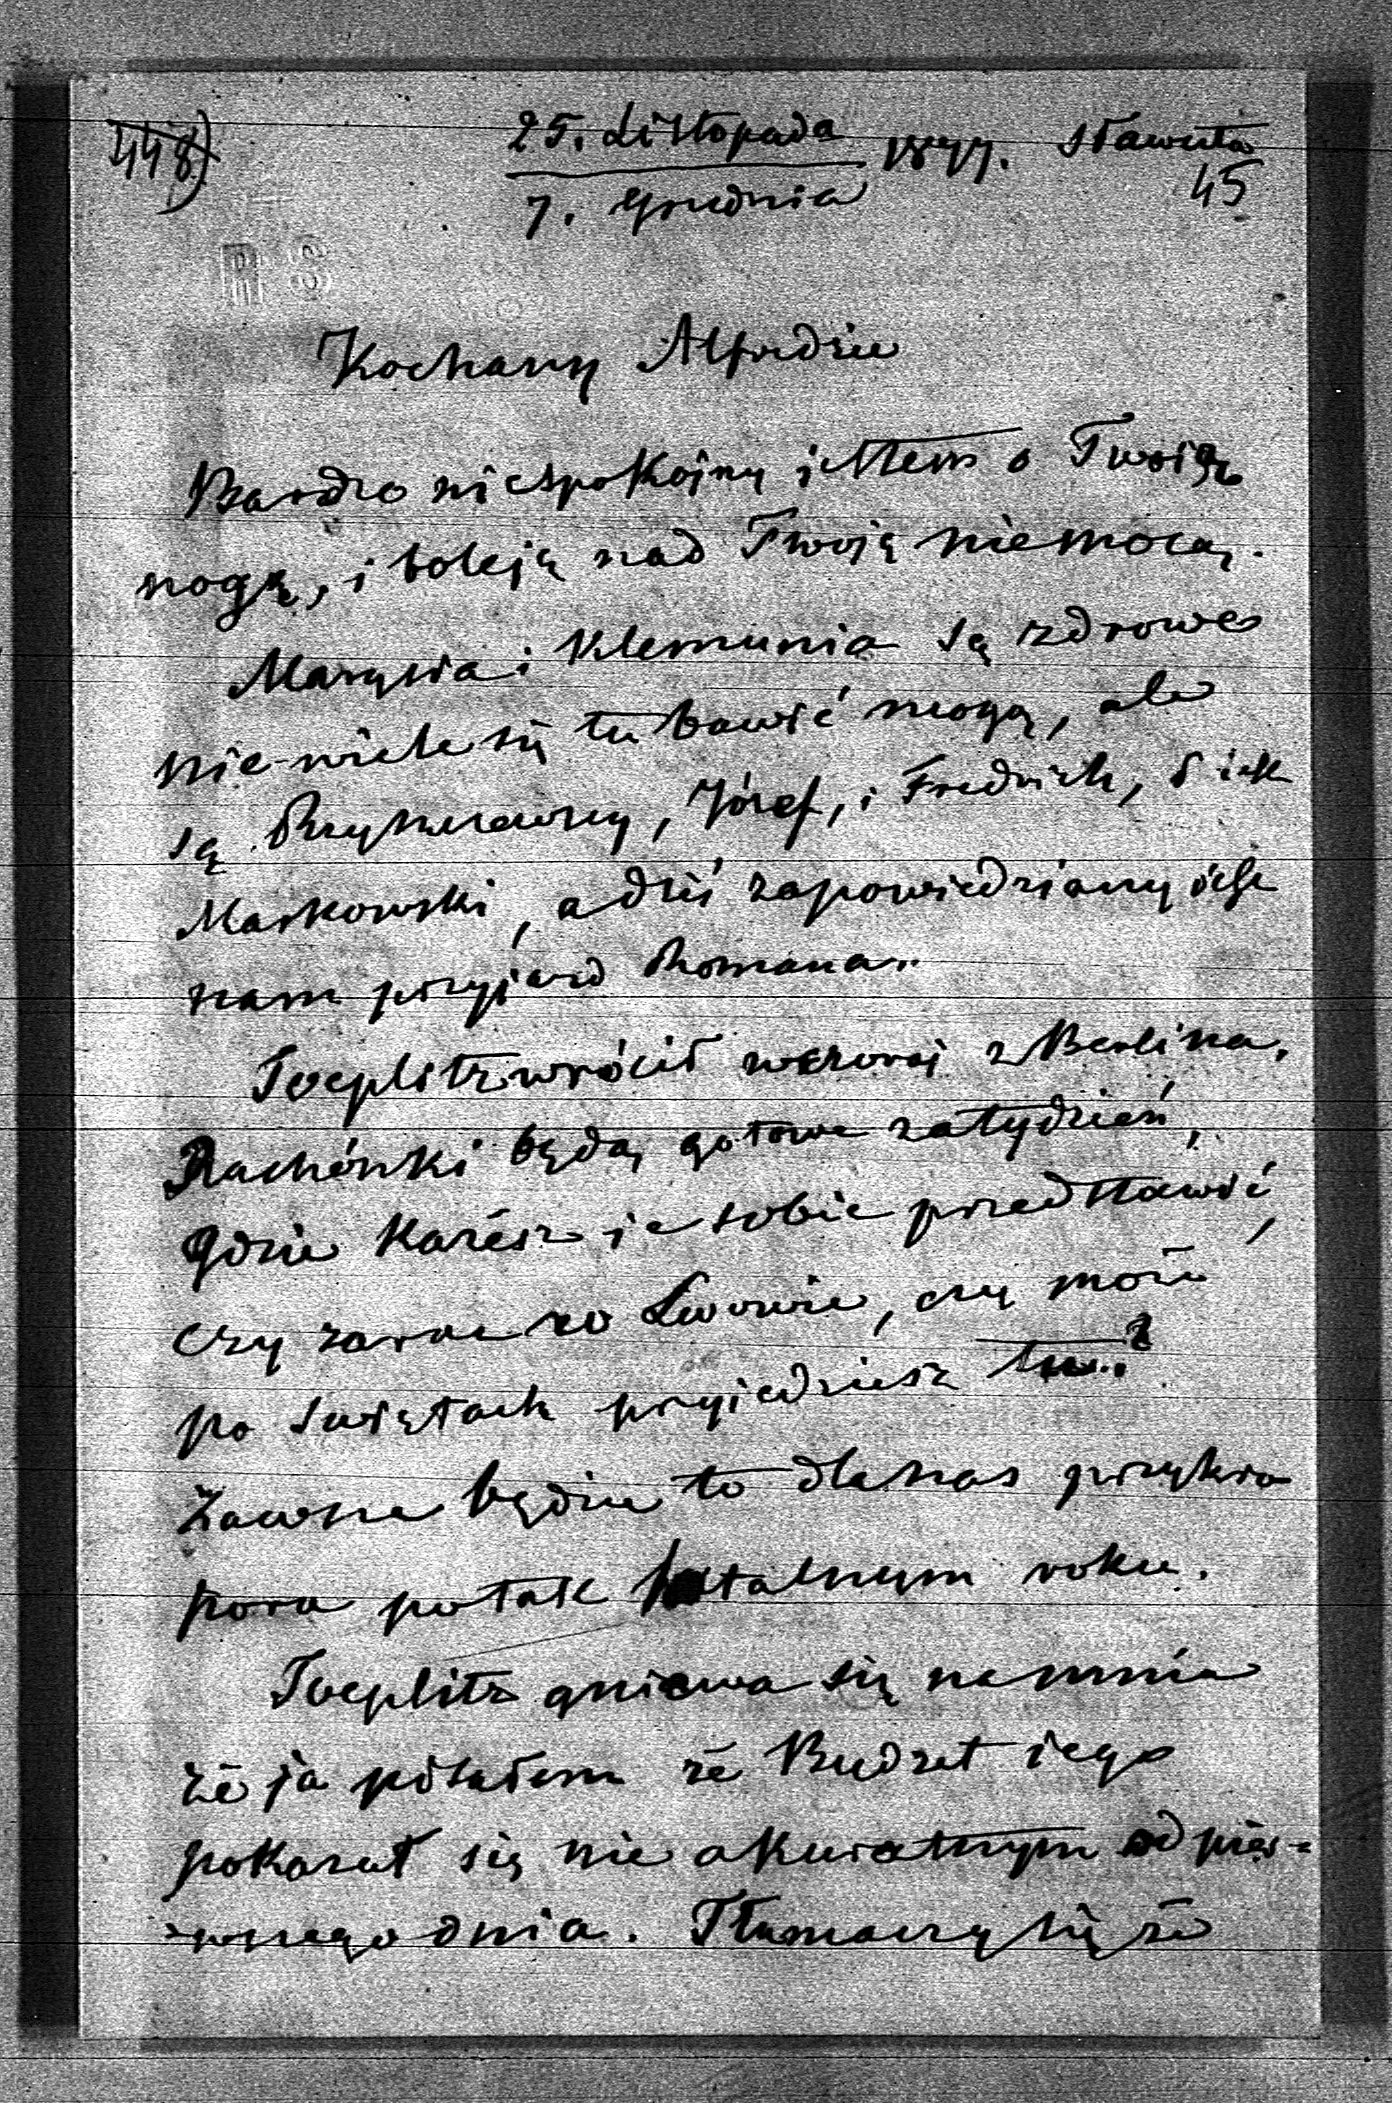 448)
25. Listopada 1877. Sławuta
7. Grudnia
45
RS
Kochany Alfredzie
Bardzo niespokojny jestem o Twoię
nogę, i boleję nad Twoją niemocą.
Marysia i Klemunia są zdrowe
nie wiele się tu bawić mogą, ale
są Przyszewscy, Józef, i Fredrich, i
Markowski, a dziś zapowiedziany jest
nam przyjazd Romana..
Toeplitz wrócił wczoraj z Berlina.
Rachónki będą gotowe za tydzień,
gdzie każesz je sobie przedstawić,
czy zaraz wo Lwowie, czy może
po swiętach przyiedziesz tu..?
Zawsze będzie to dla nas przykra
pora po tak fatalnym roku.
Toeplitz gniewa się na mnie
że ja pisałem że Budzet iego
pokazał się nie akuratnym od pier-
-wszego dnia. Tłumaczy się że